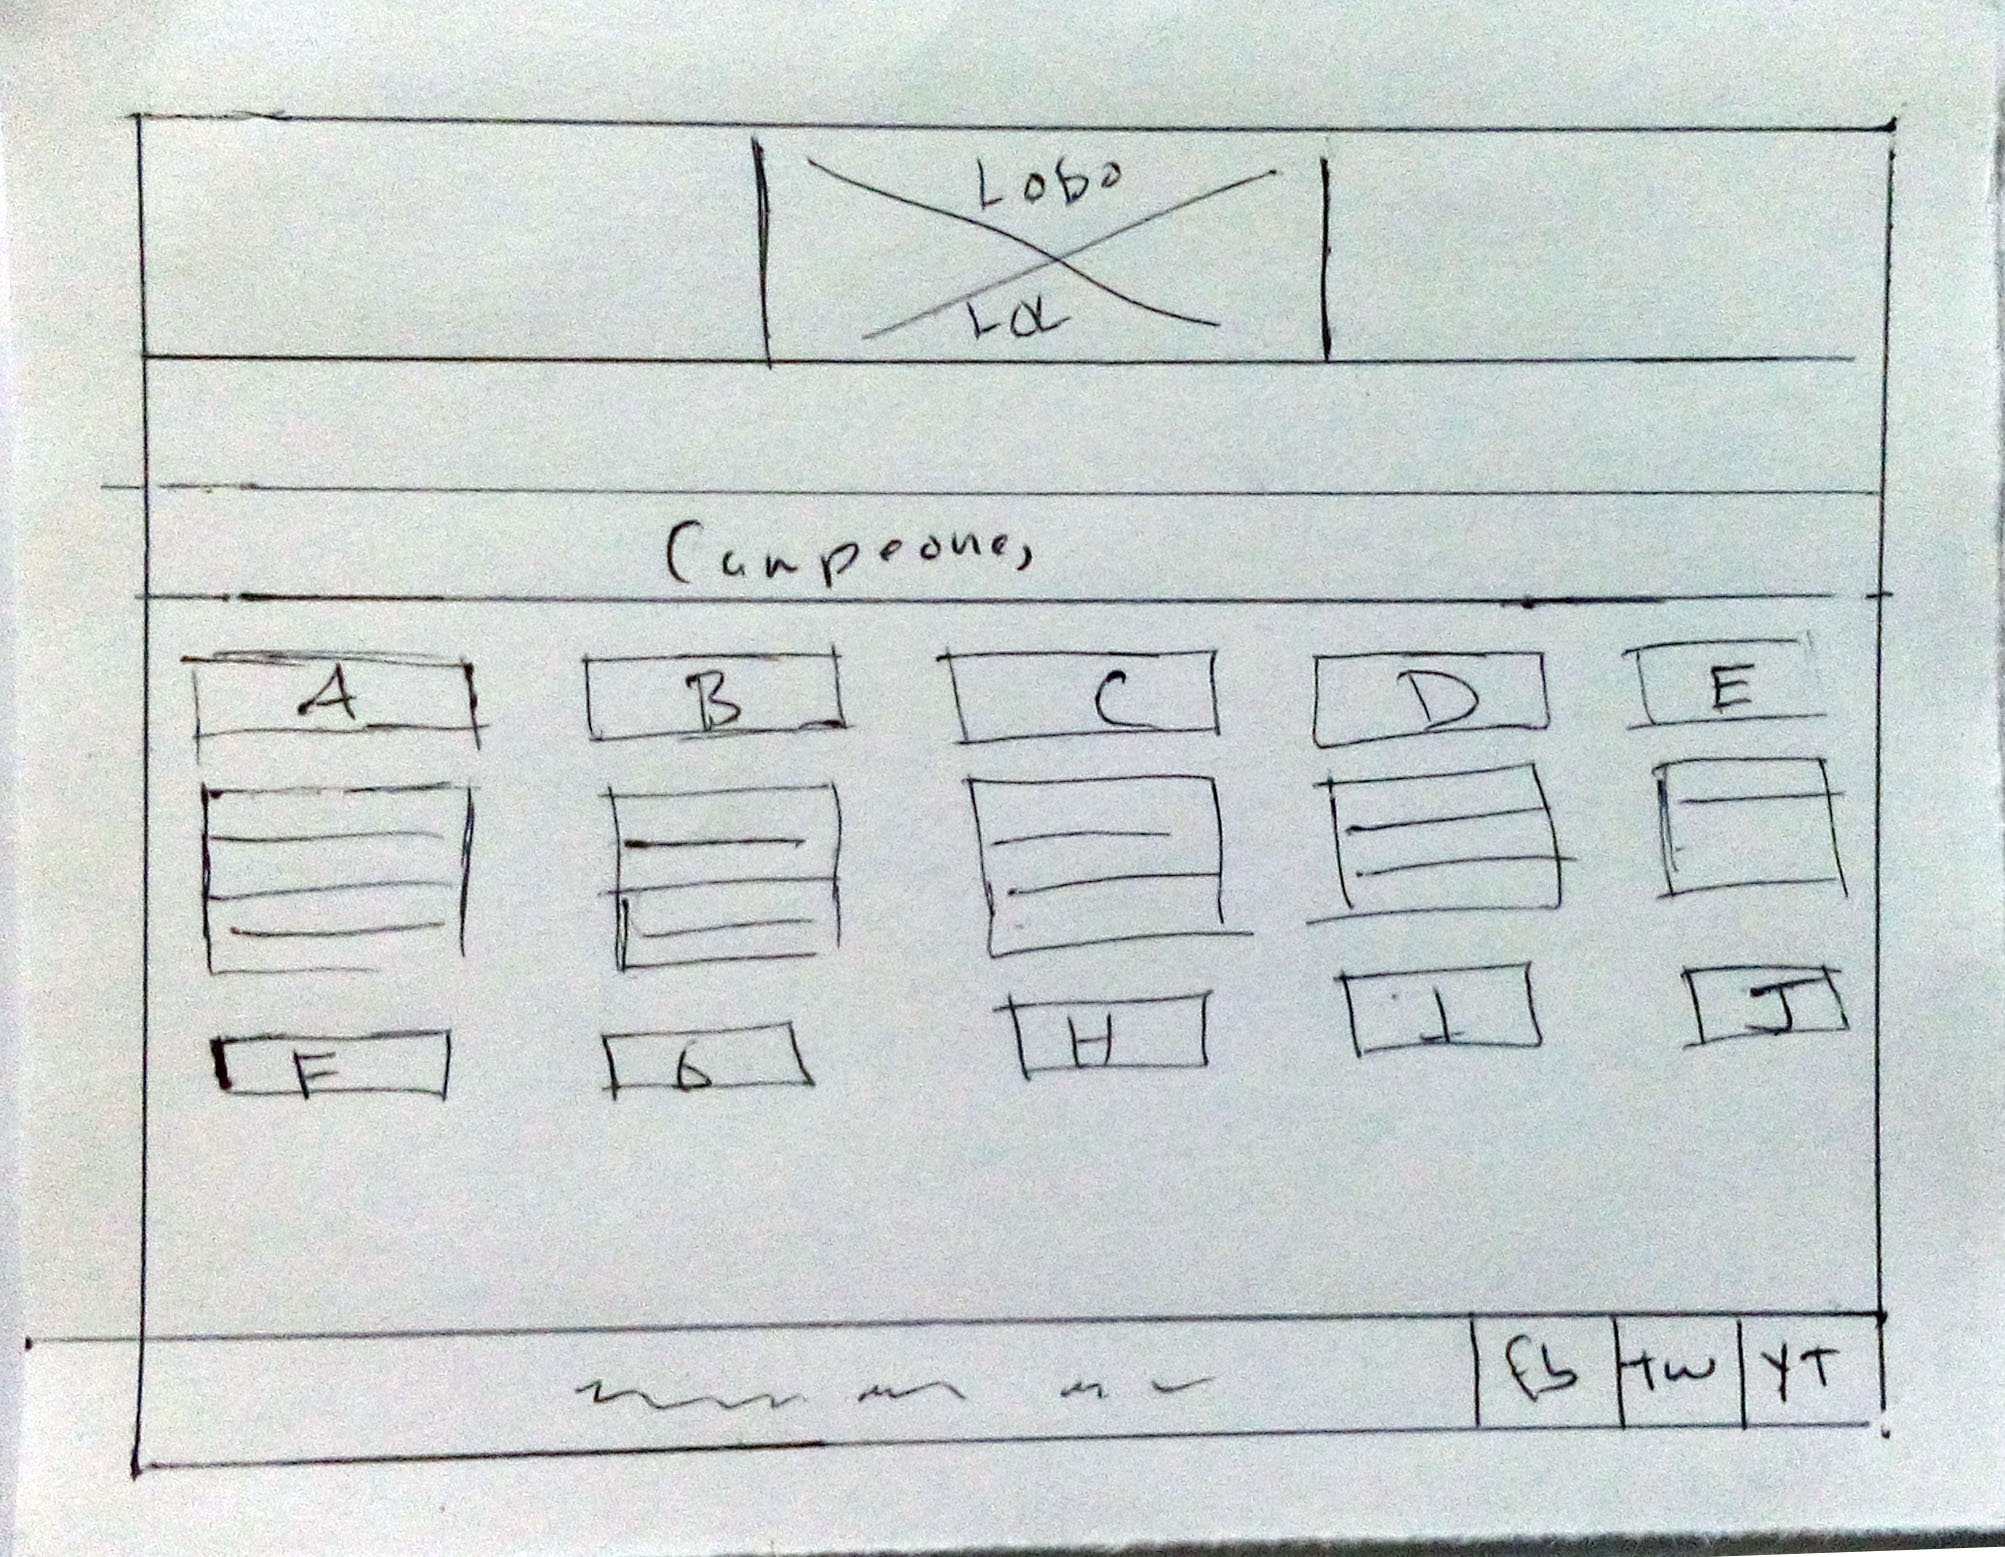 Lobo
Lol
Campeones
A B C D E
F G H I J
Fb tw YT